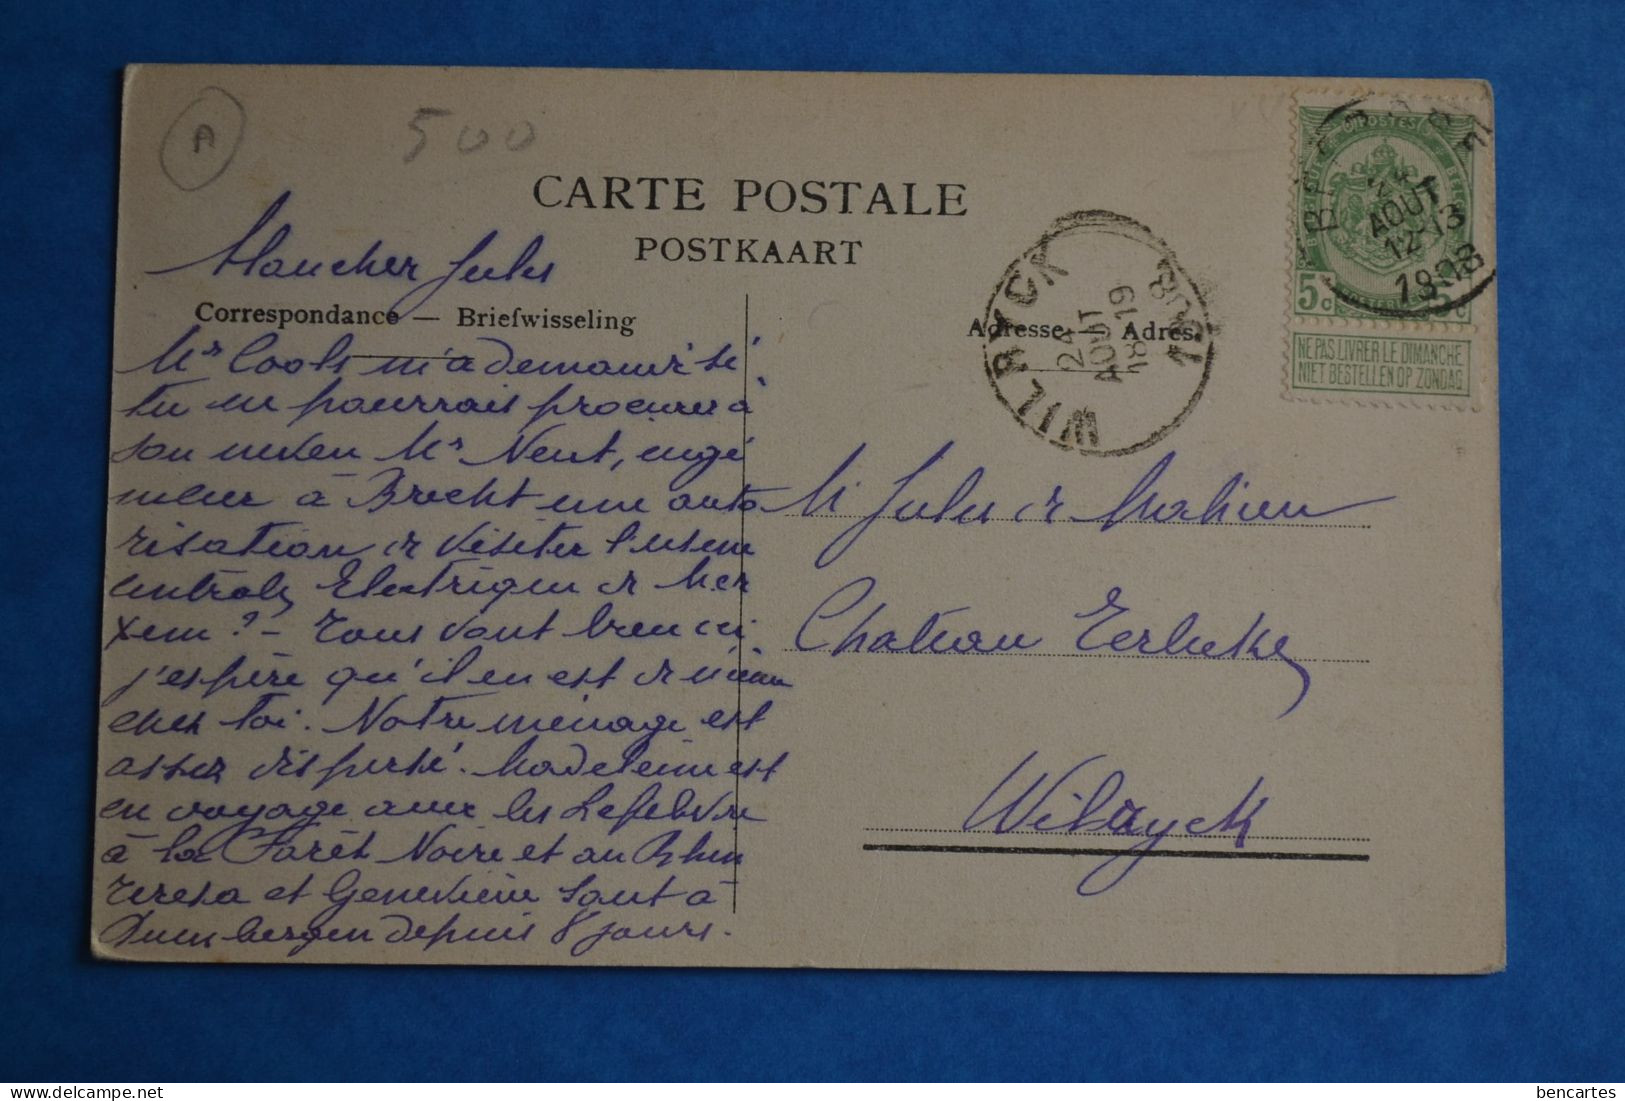 A
500
CARTE POSTALE
POSTKAART
Mon cher Jules
Correspondance — Briefwisseling
Adresse — Adres.
Mr Cools m'a demandé si
tu ne pourrais procurer à
son neveu Mr Nent, ingé
nieur à Brecht une auto
risation de visiter l'usine
centrale Electrique de Mer
xem? - Tous vont bien ici
j'espère qu'il en est de même
chez toi. Notre ménage est
assez dispersé. Madeleine est
en voyage avec les Lefebvre
à la Forêt Noire et au Rhin
Teresa et Geneviève sont à
Duinbergen depuis 8 jours.
M Jules de
Chateau
Wilryck
WILRYCK
24
AOUT
18-19
1908
POSTES
24
AOUT
12-13
1908
5c 5c
NE PAS LIVRER LE DIMANCHE
NIET BESTELLEN OP ZONDAG
bencartes